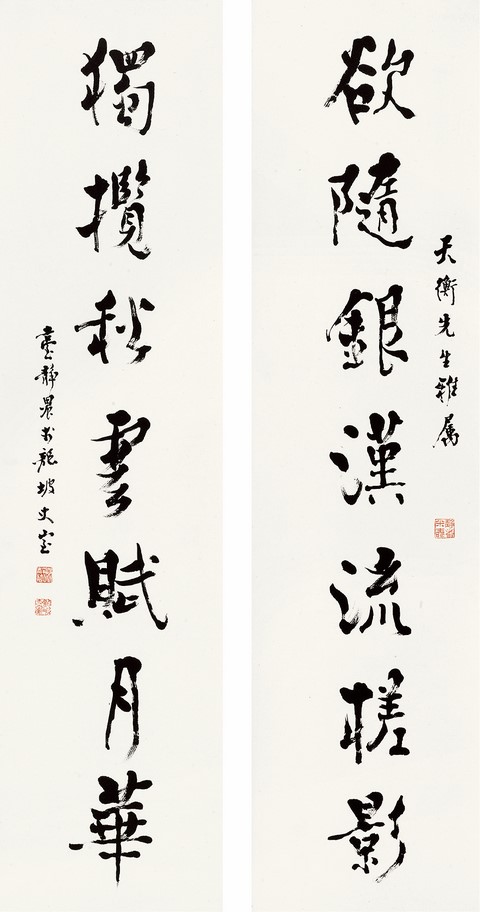 天衡先生雅属
欲隨銀漢流槎影
獨攬秋雲賦月華
臺靜農於龍坡丈室